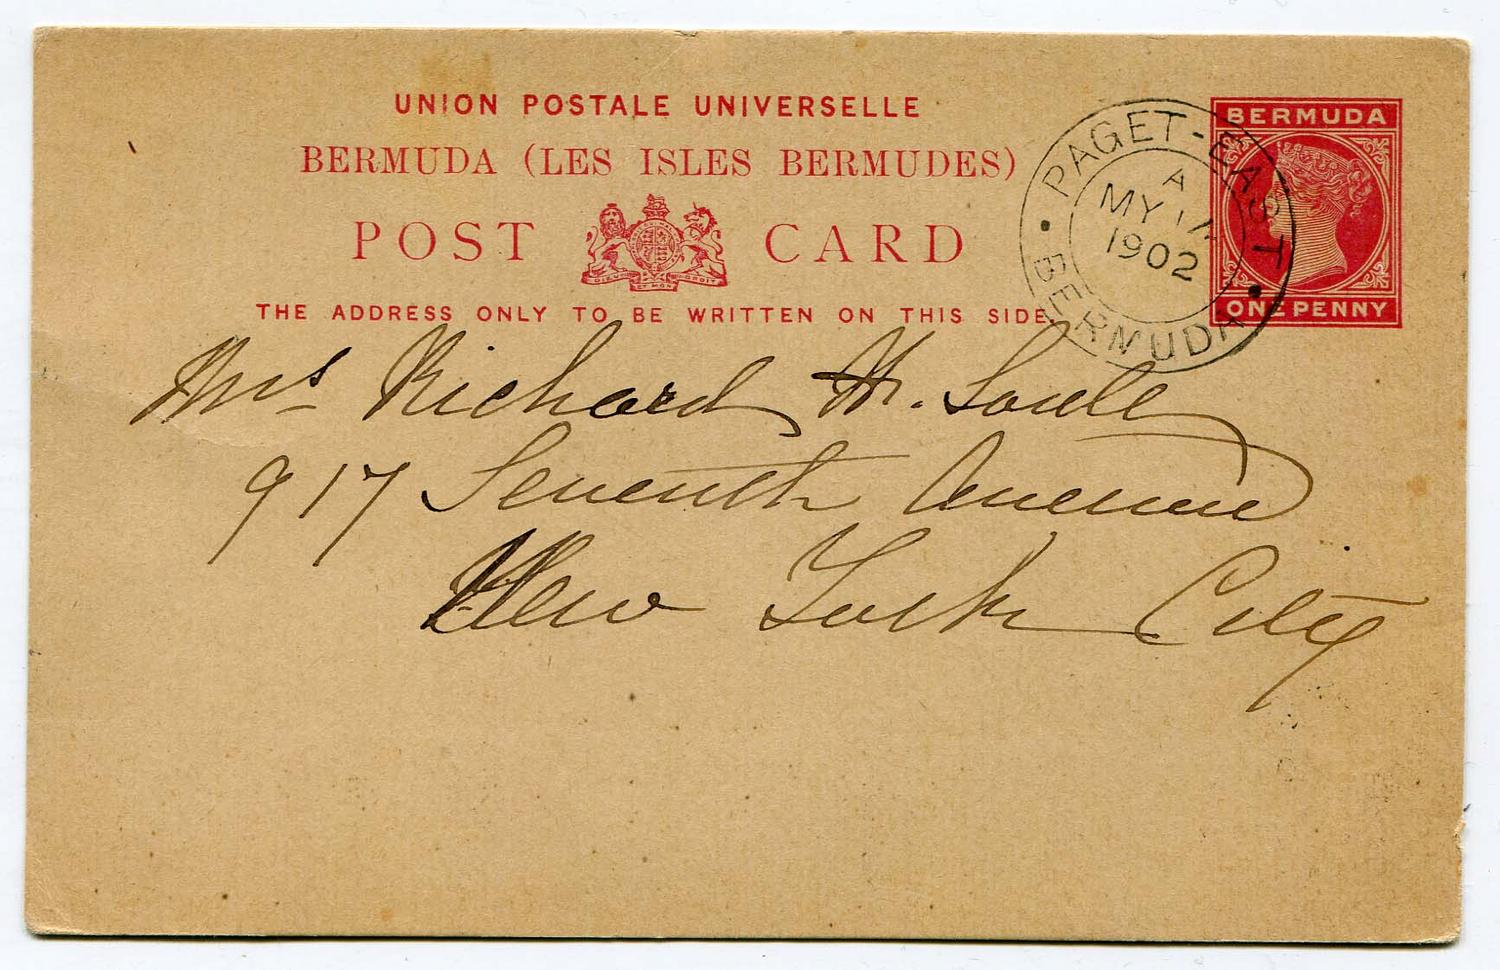 UNION POSTALE UNIVERSELLE
BERMUDA (LES ISLES BERMUDES)
POST CARD
THE ADDRESS ONLY TO BE WRITTEN ON THIS SIDE.
BERMUDA
ONE PENNY
PAGET-EAST
A
MY
1902
BERMUDA
Mrs Richard H. Soule
917 Seventh Avenue
New York City